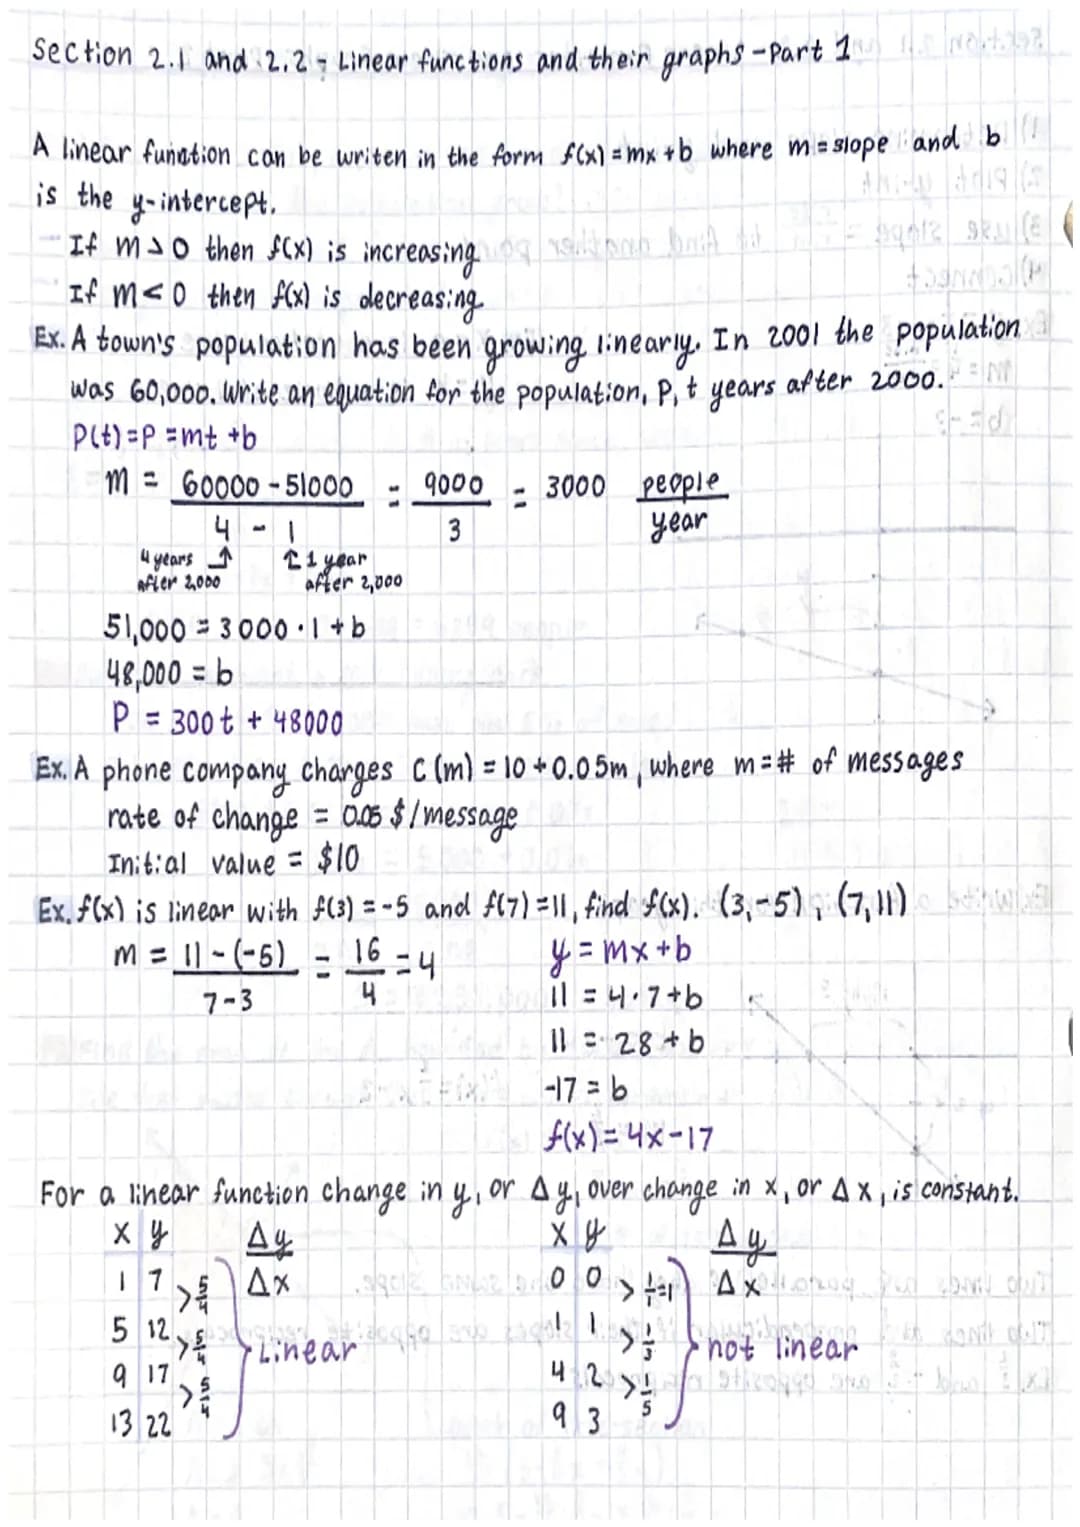 Section 2.1 and 2.2 - Linear functions and their graphs - Part 1
A linear function can be writen in the form f(x) = mx + b where m = slope and b
is the y-intercept.
- If m > 0 then f(x) is increasing
- If m < 0 then f(x) is decreasing
Ex. A town's population has been growing linearly. In 2001 the population
was 60,000. Write an equation for the population, P, t years after 2000.
P(t) = P = mt + b
m = 60000 - 51000 / 4 - 1 = 9000 / 3 = 3000 people / year
4 years after 2,000 ↑ ↑ 1 year after 2,000
51,000 = 3000 · 1 + b
48,000 = b
P = 300t + 48000
Ex. A phone company charges C(m) = 10 + 0.05m, where m = # of messages
rate of change = 0.05 $/message
Initial value = $10
Ex. f(x) is linear with f(3) = -5 and f(7) = 11, find f(x). (3,-5), (7,11)
m = 11 - (-5) / 7 - 3 = 16 / 4 = 4
y = mx + b
11 = 4 · 7 + b
11 = 28 + b
-17 = b
f(x) = 4x - 17
For a linear function change in y, or Δy, over change in x, or Δx, is constant.
x y Δy / Δx
1 7 > 5/4
5 12 > 5/4
9 17 > 5/4
13 22
Linear
x y Δy / Δx
0 0 > 1/1 = 1
1 1 > 1/3
4 2 > 1/5
9 3
not linear